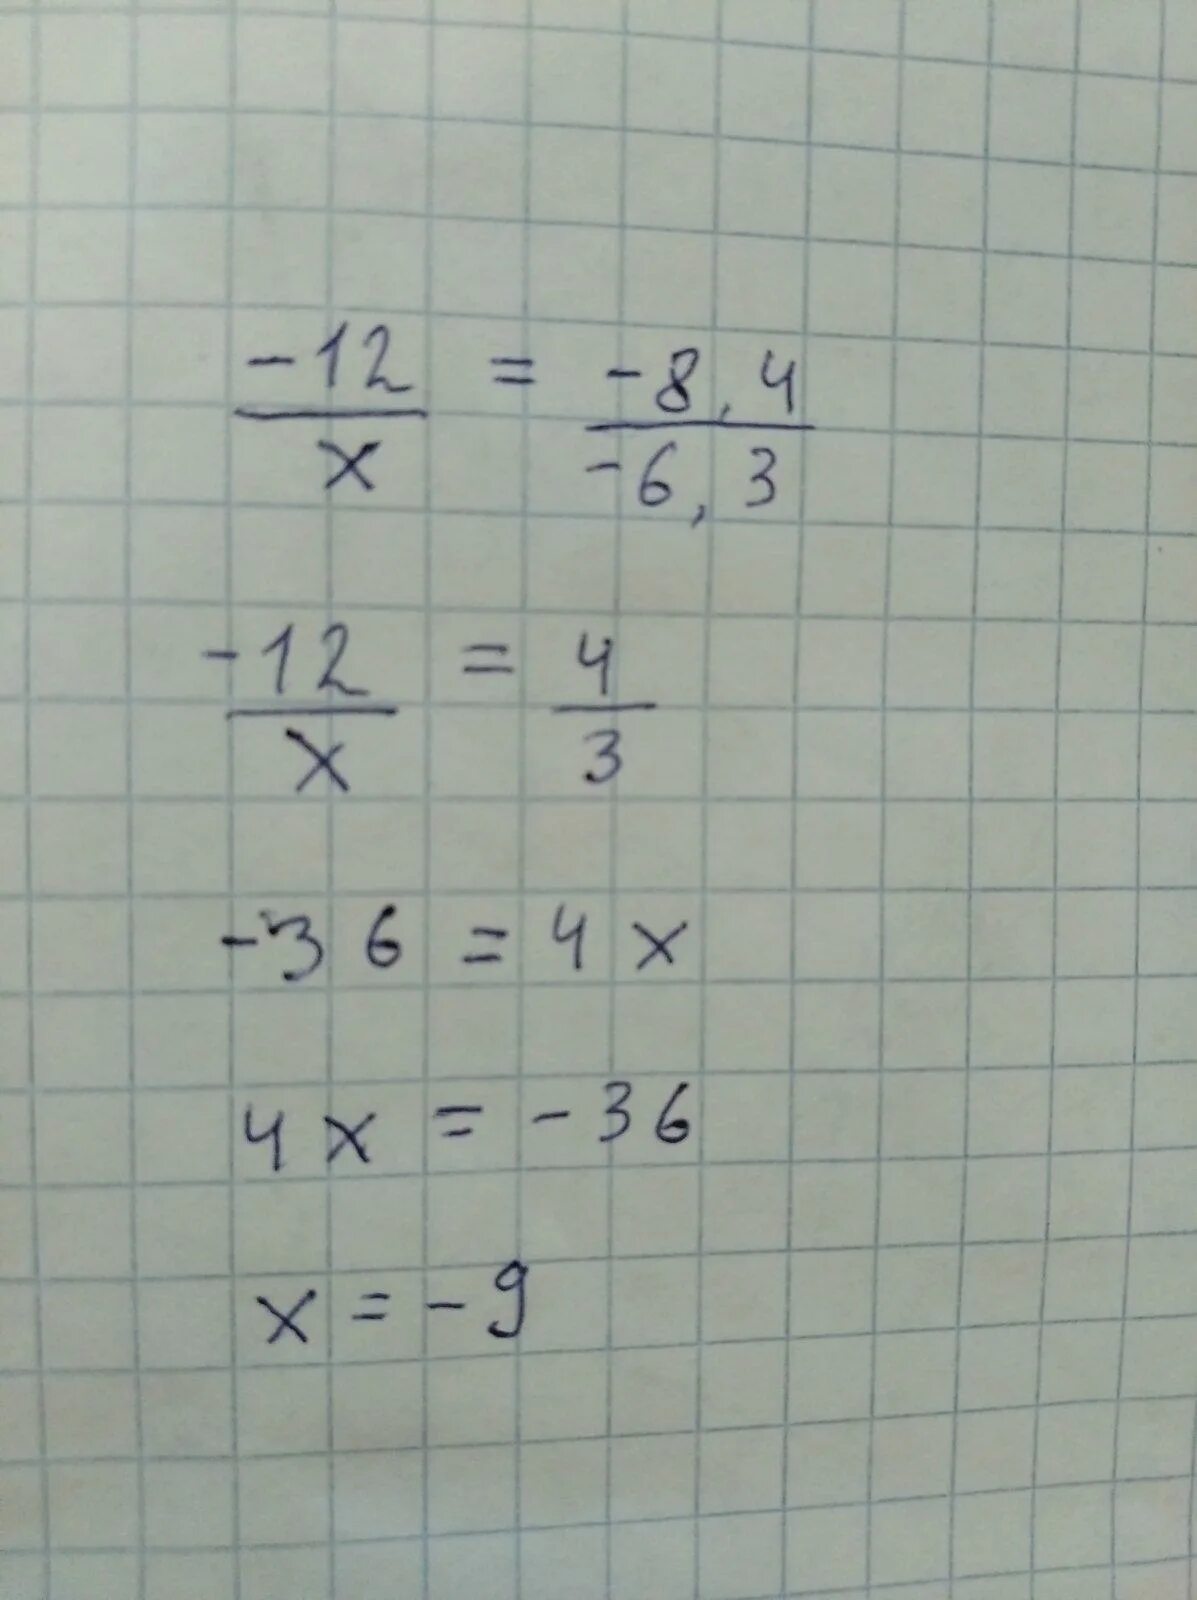 -12/x = -8,4/-6,3
-12/x = 4/3
-36 = 4x
4x = -36
x = -9